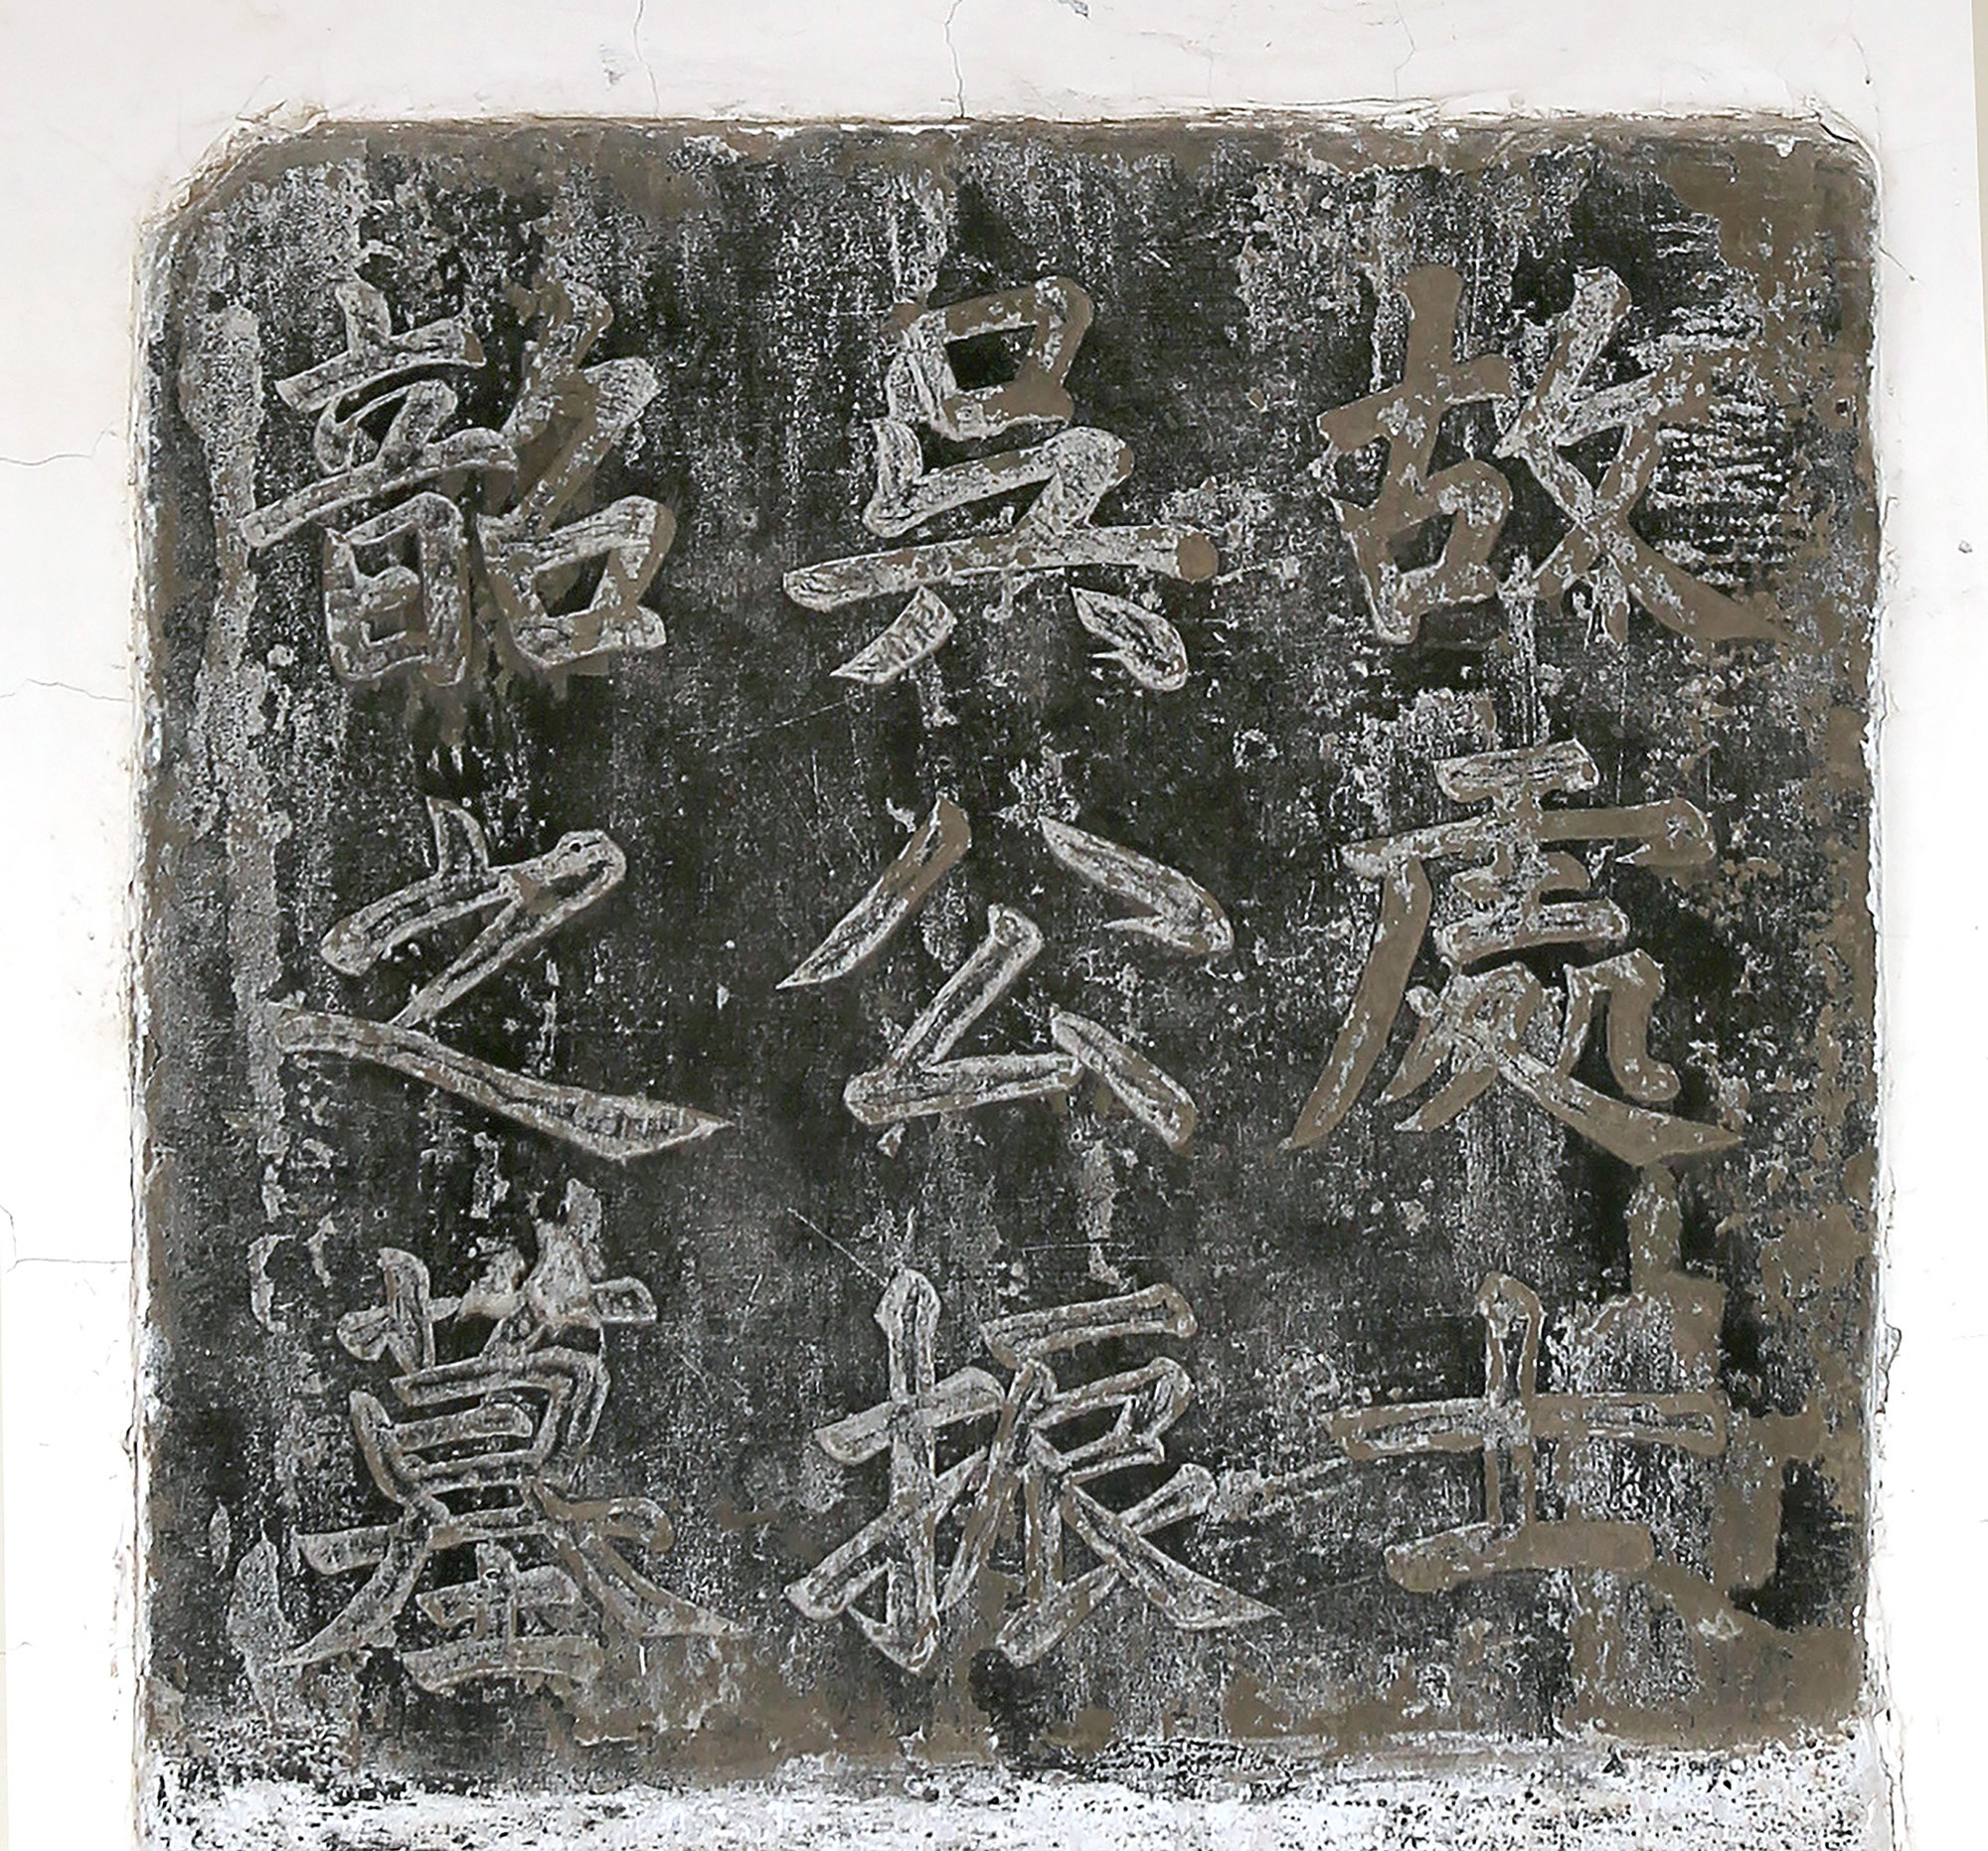 故處士
吳公振
韶之墓